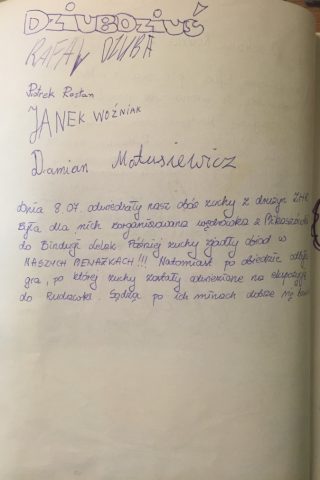 DZIUBDZIUŚ
RAFAŁ DZIUBA
Piotrek Rostan
JANEK WOŹNIAK
Damian Matusiewicz
Dnia 8.07. odwiedzały nasz obóz zuchy z drużyn ZHR
Była dla nich zorganizowana wędrówka z
do Bindugi Lelek. Później zuchy zjadły obiad w
NASZYCH MENAŻKACH!!! Natomiast po obiedzie odbyła
gra, po której zuchy zostały odwiezione na
do Rudawki. Sądząc po ich minach dobrze się